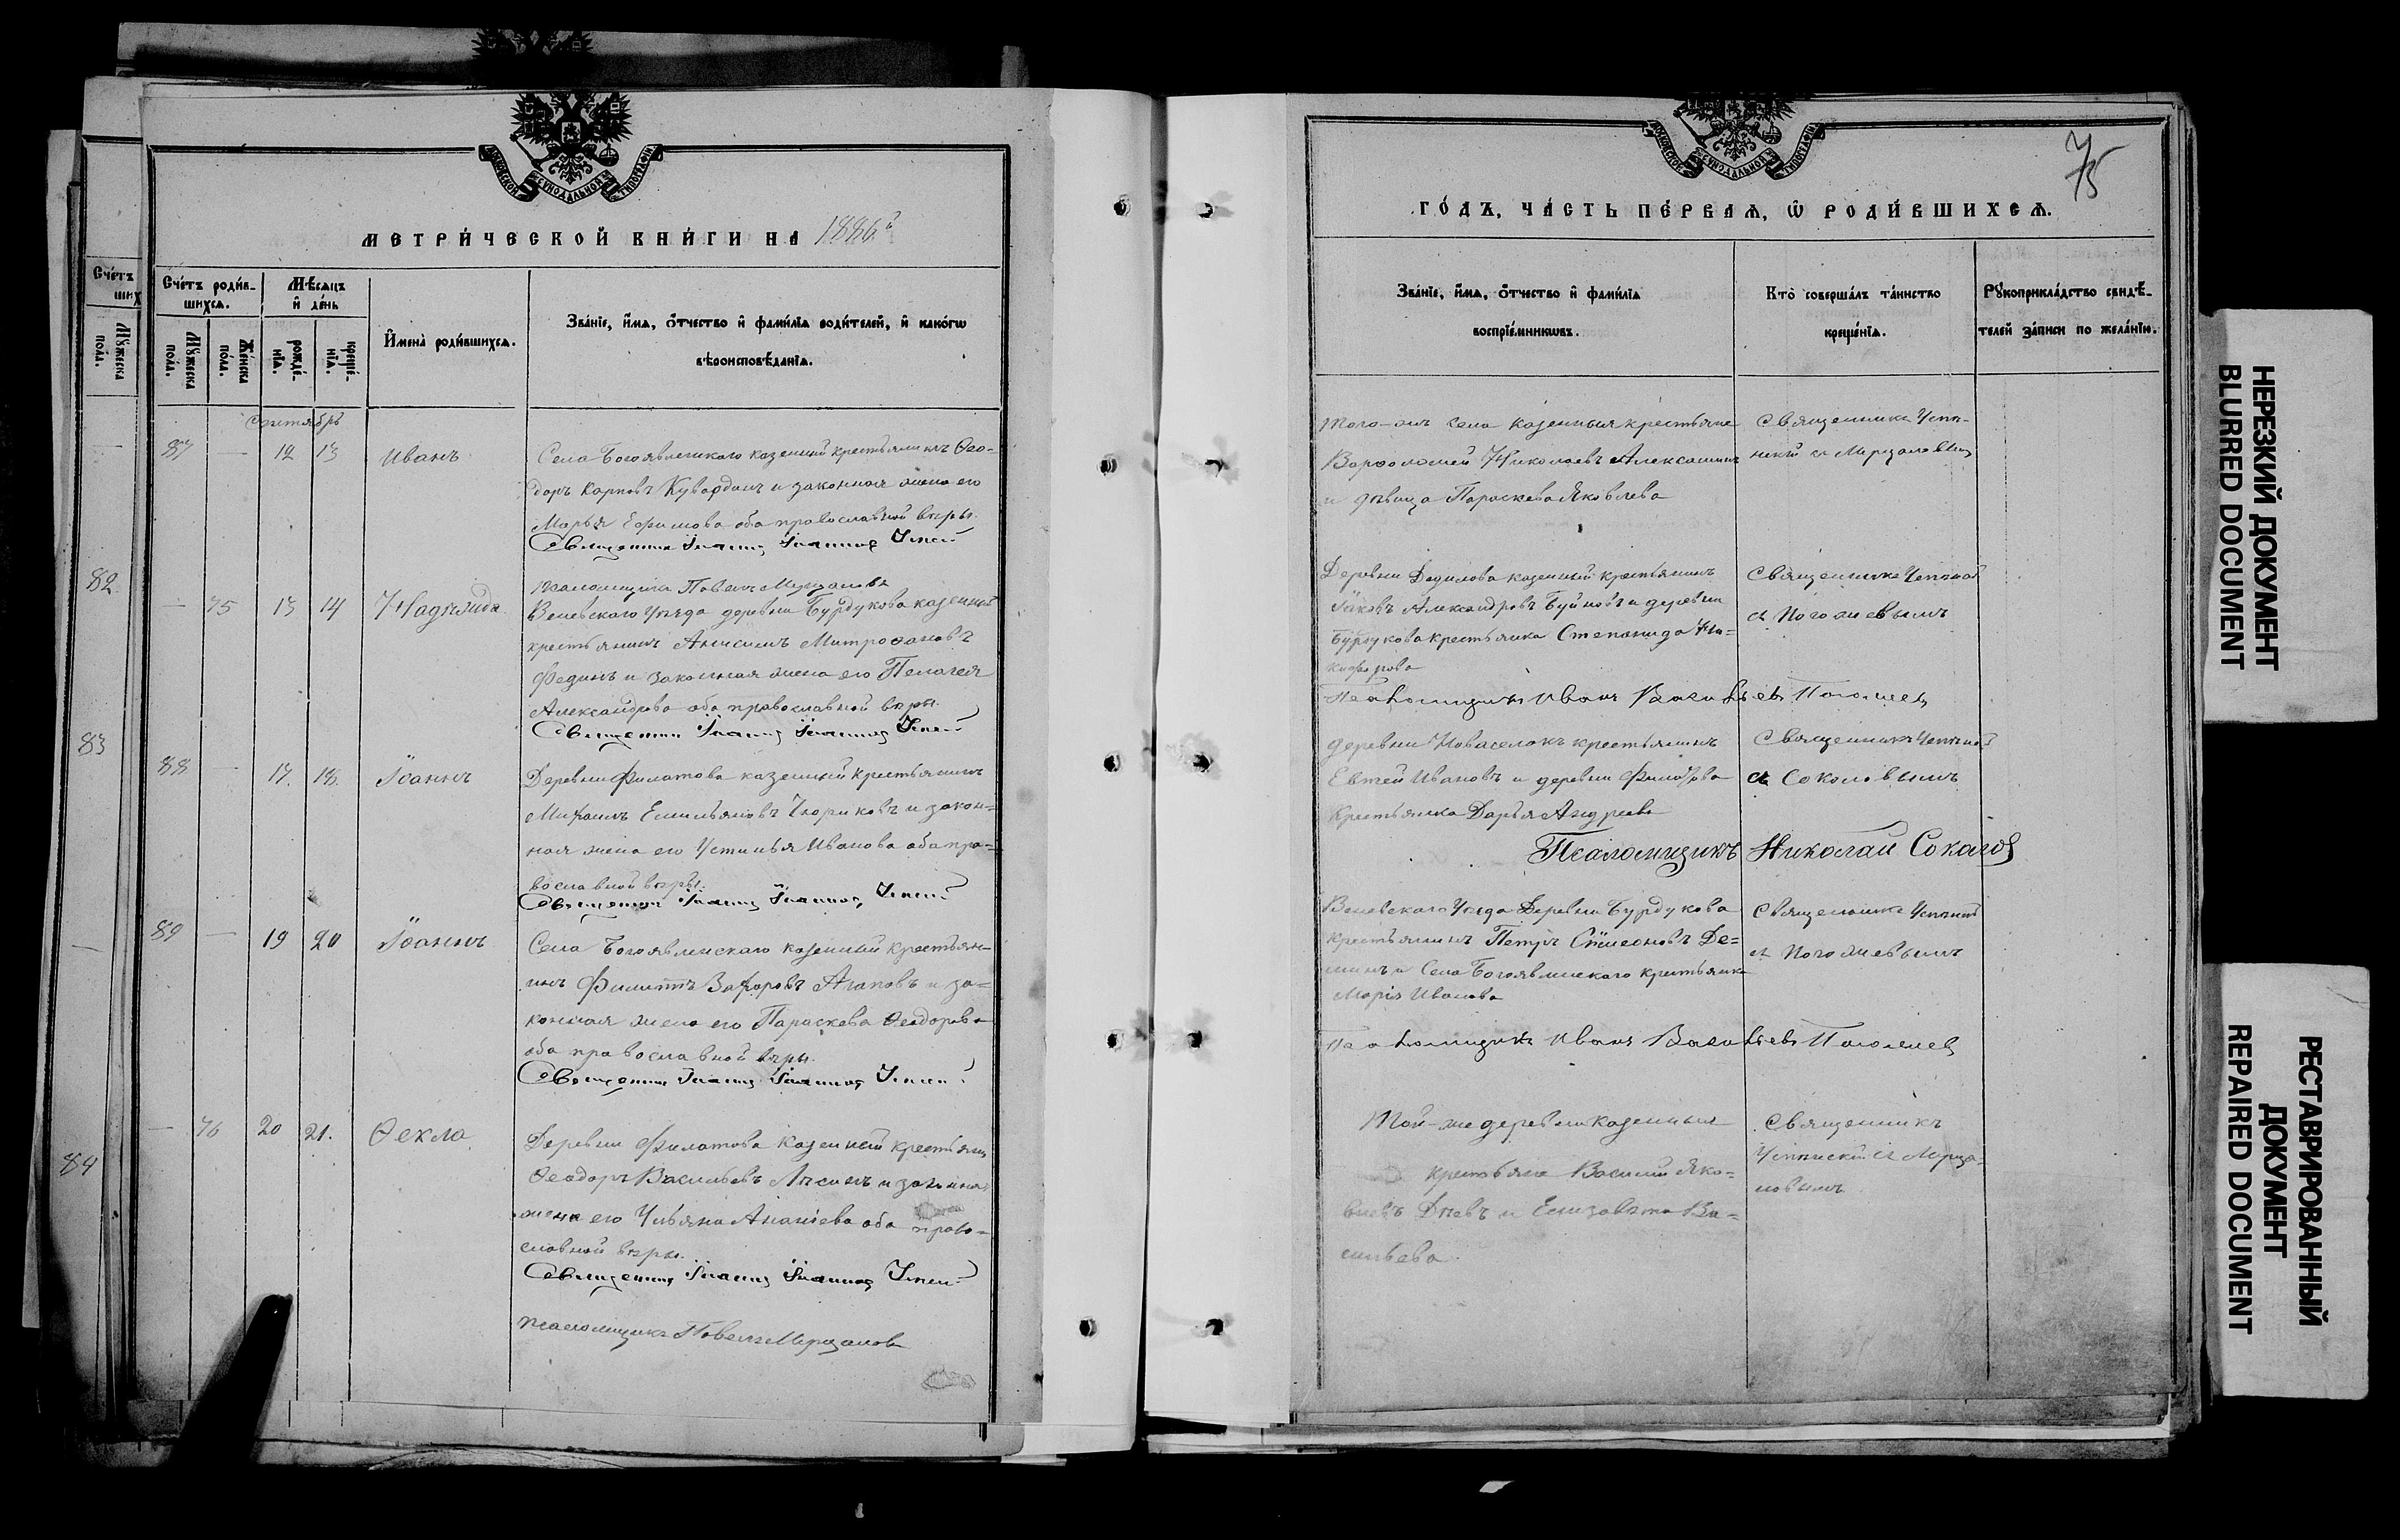 МОСКОВСКОЙ СѴНОДАЛЬНОЙ ТИПОГРАФІИ
МЕТРИ́ЧЕСКОЙ КНИ́ГИ НА 1886
Сче́тъ роди́в-
шихсѧ.
Мѣ́сѧцъ
и҆ де́нь
Мꙋ́жеска по́ла.
Же́нска по́ла.
рожде́-нїѧ.
креще́-нїѧ.
И҆мена̀ роди́вшихсѧ.
Зва́нїе, и҆́мѧ, ѻ҆́тчество и҆ фами́лїѧ роди́телей, и҆ како́гѡ
вѣроисповѣ́данїѧ.
Сентябрь
87 — 12 13 Иванъ
Села Богоявленскаго казенный крестьянинъ Ѳео-
доръ Карповъ и законная жена его
Марья Ефимова оба православной вѣры.
Священникъ Іоаннъ Іоанновъ
псаломщикъ Павелъ Мерцаловъ
— 75 13 14 Надѣжда
Веневскаго Уѣзда деревни Бурдукова казенный
крестьянинъ Анисимъ Митрофановъ
Фединъ и законная жена его Пелагея
Александрова оба православной вѣры.
Священникъ Іоаннъ Іоанновъ
88 — 17. 18. Іоаннъ
Деревни Филатова казенный крестьянинъ
Михаилъ Емильяновъ и закон=
ная жена его Устинья Иванова оба пра=
вославной вѣры.
Священникъ Іоаннъ Іоанновъ
89 — 19 20 Іоаннъ
Села Богоявленскаго казенный крестьян-
инъ Филиппъ Захаровъ Агаповъ и за=
конная жена его Параскева Ѳеодорова
оба православной вѣры.
Священникъ Іоаннъ Іоанновъ
— 76 20 21. Ѳекла
Деревни Филатова казенный крестьянин
Ѳеодоръ Васильевъ и законная
жена его Ульяна Ананіева оба право=
славной вѣры.
Священникъ Іоаннъ Іоанновъ
псаломщикъ Павелъ Мерцаловъ
82
83
84
75
ГО́ДЪ, ЧА́СТЬ ПЕ́РВАѦ, Ѡ҆ РОДИ́ВШИХСѦ.
Зва́нїе, и҆́мѧ, ѻ҆́тчество и҆ фами́лїѧ
воспрїе́мникѡвъ.
Кто̀ соверша́лъ та́инство
креще́нїѧ.
Рꙋкоприкла́дство свидѣ́-
телей за́писи по жела́нїю.
того-жъ села казенныя крестьяне
Варѳоломей Николаевъ
и дѣвица Параскева Яковлева
Священникъ
съ Мерцаловым
Деревни Дедилова казенный крестьянинъ
Іаковъ Александровъ Буйновъ и деревни
Бурдукова крестьянка Степанида Ни=
кифорова
Священникъ
съ Погожевымъ
Псаломщикъ Иванъ Васильевъ Погожевъ
деревни Новоселокъ крестьянинъ
Евтей Ивановъ и деревни Филатова
Крестьянка Дарья Андреева
Священникъ
съ Соколовымъ
Псаломщикъ Николай Соколов
Веневскаго Уѣзда Деревни Бурдукова
крестьянинъ Петръ Сѵмеоновъ Де=
минъ и Села Богоявленскаго крестьянка
Марія Иванова
Священникъ
съ Погожевымъ
Псаломщикъ Иванъ Васильевъ Погожевъ
Той-же деревни казенныя
крестьяне Василий Яко=
влевъ и Елизавета Ва=
сильева.
Священникъ
съ Мерца-
ловымъ
НЕРЕЗКИЙ ДОКУМЕНТ
BLURRED DOCUMENT
РЕСТАВРИРОВАННЫЙ
ДОКУМЕНТ
REPAIRED DOCUMENT